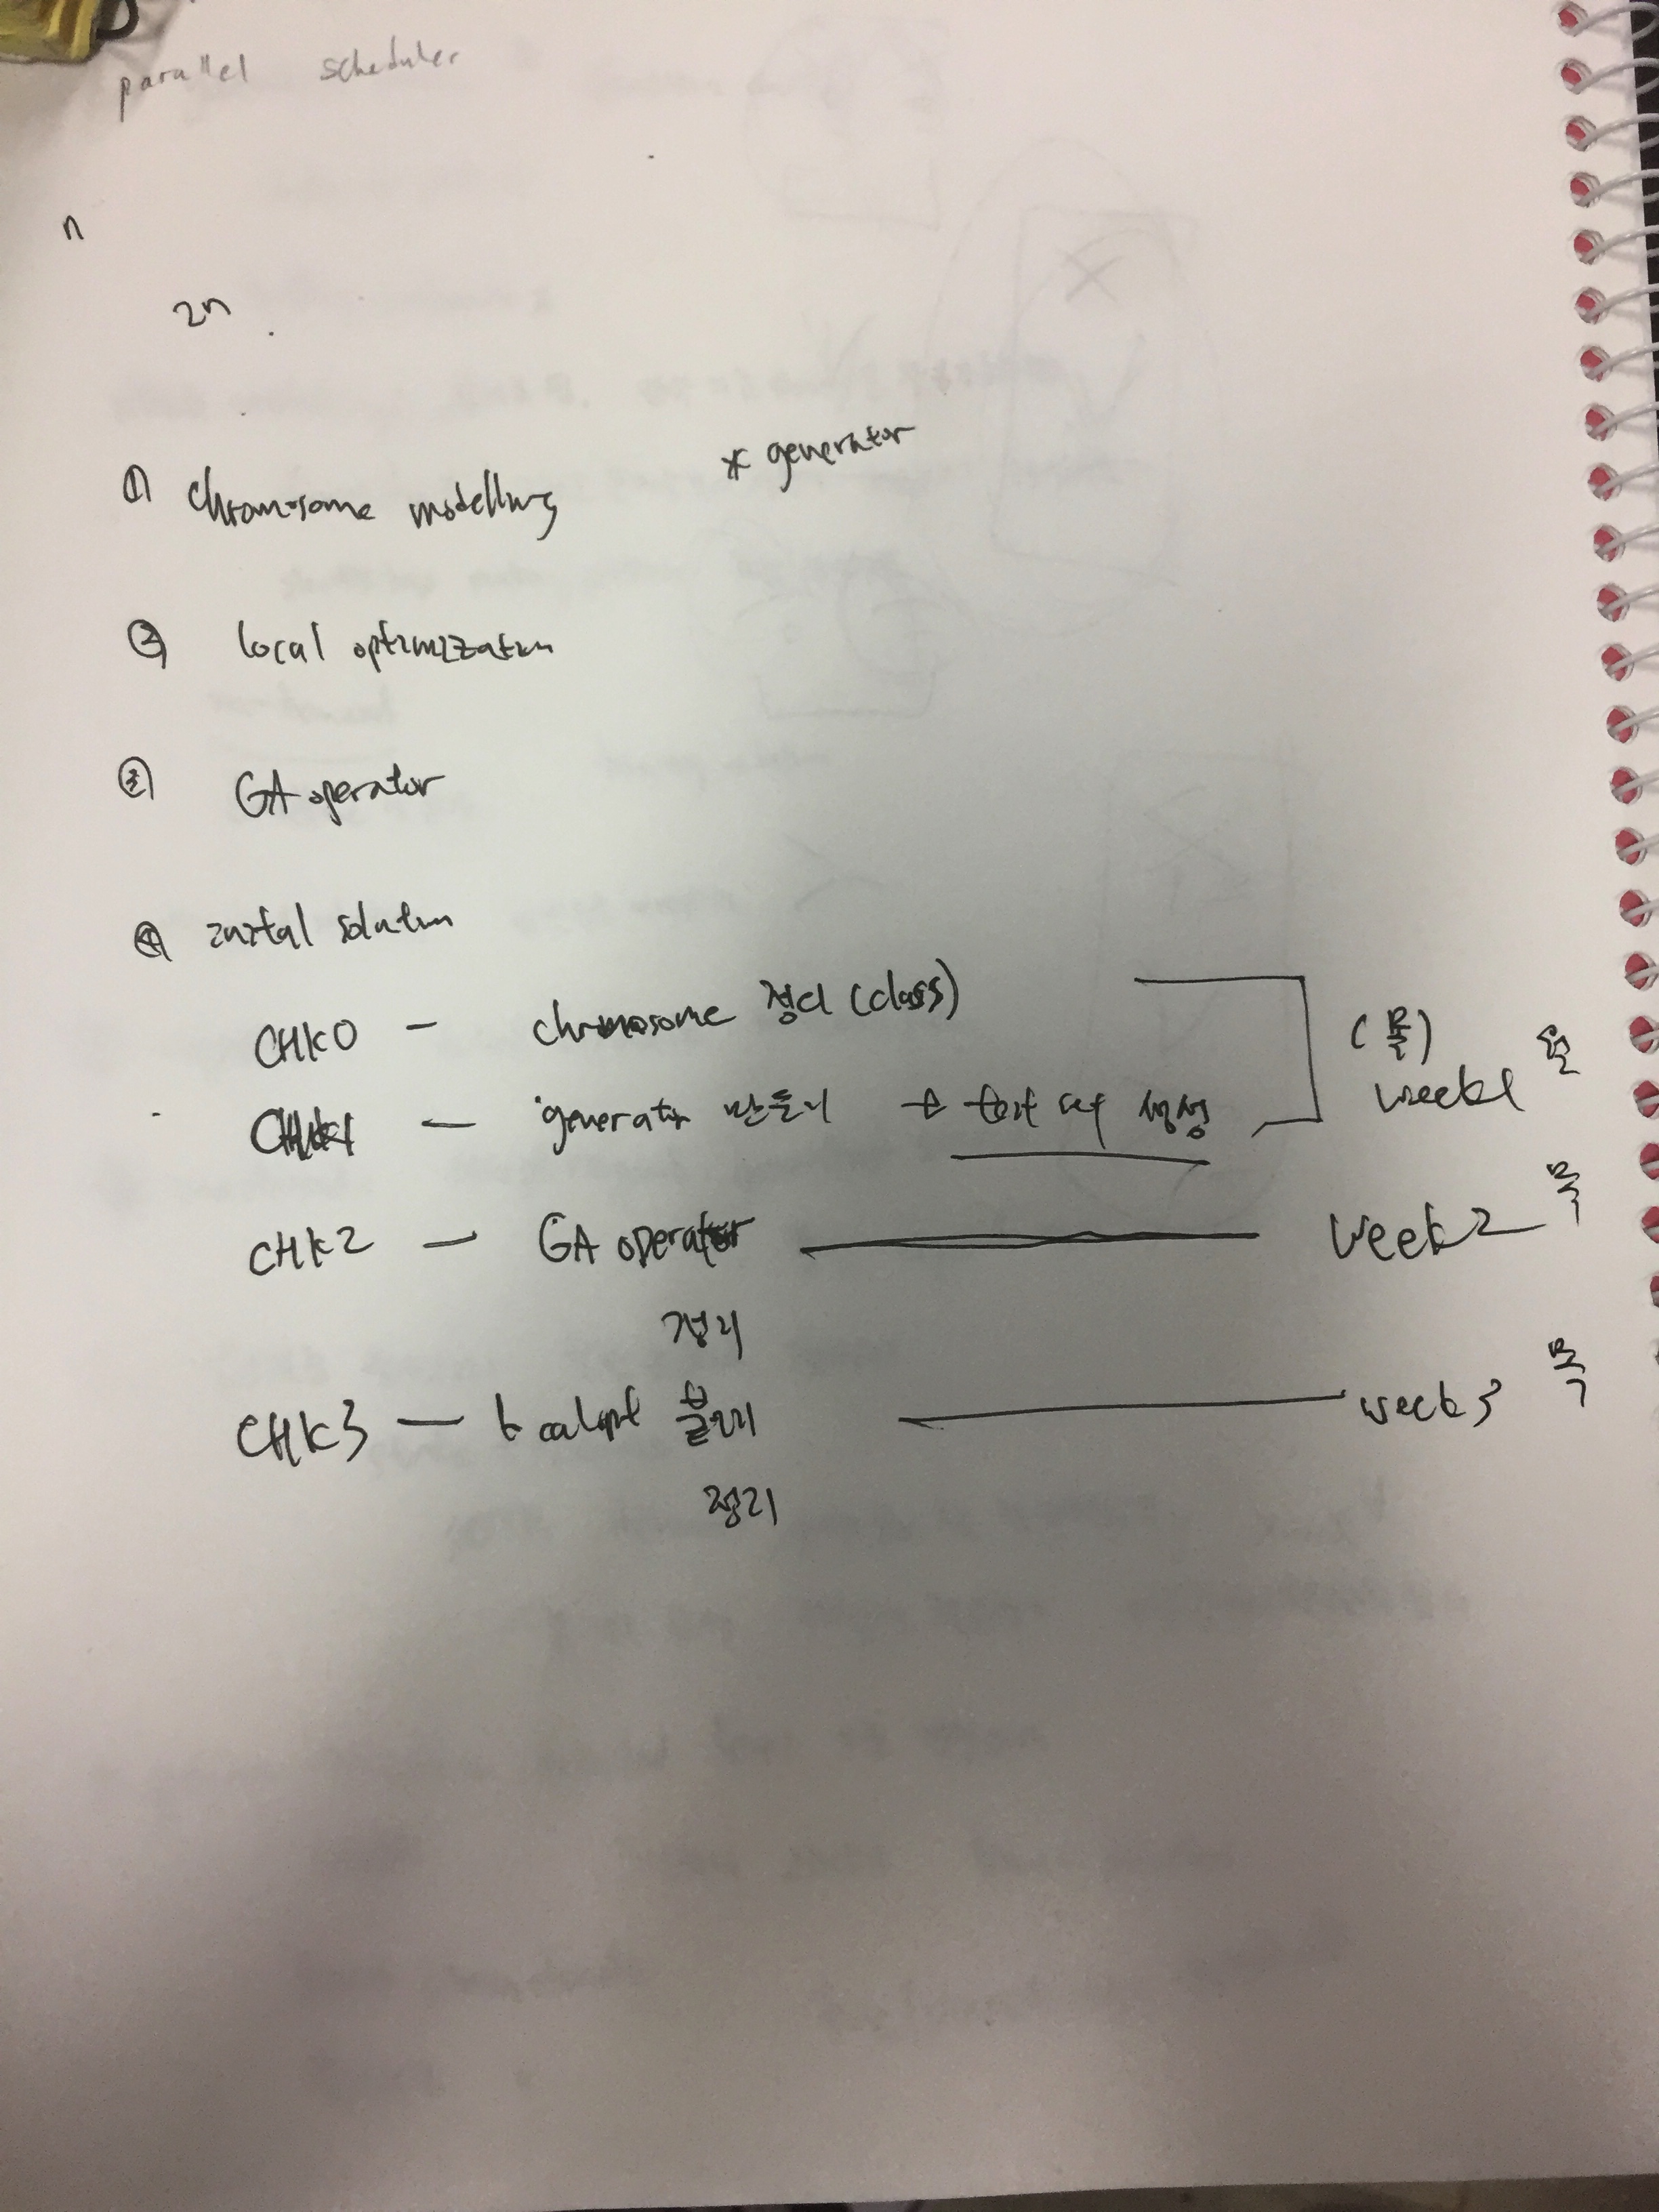 parallel scheduler
n
2n
* generator
① chromosome modelling
② local optimization
③ GA operator
④ initial solution
CHK0 — chromosome 정의 (class)
(목)
CHK1 — generator 만들기 + test set 생성
week1 월
CHK2 — GA operator week2 목
정리
CHK3 — local opt 붙이기 week3 목
정리